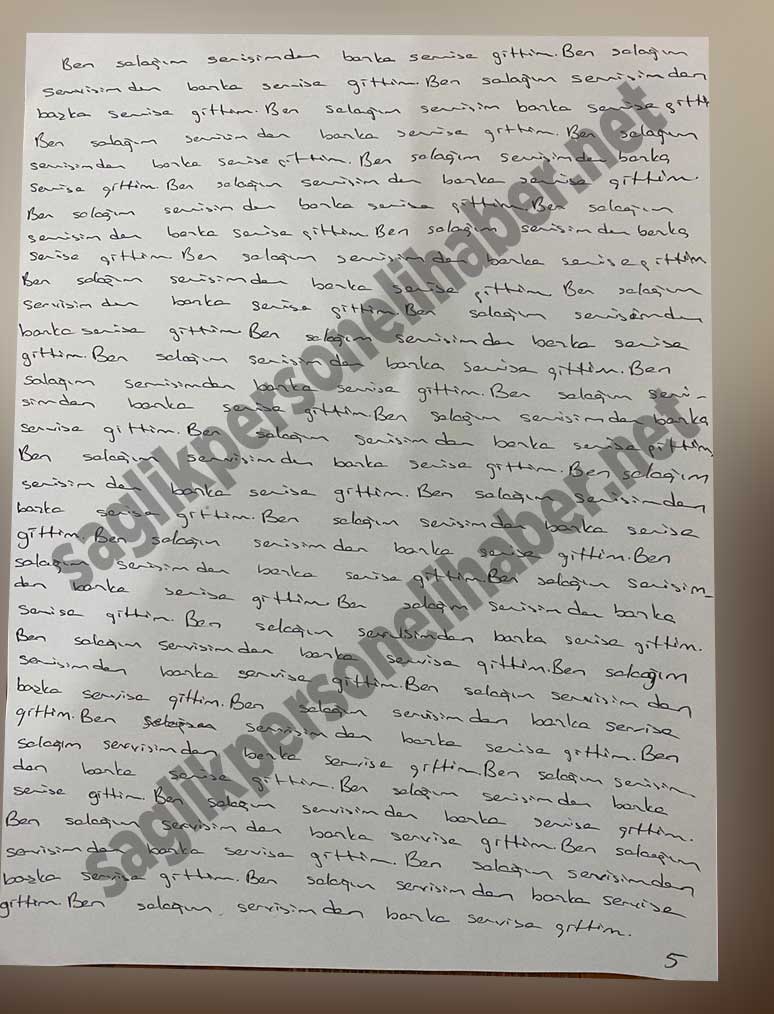 Ben salağım servisimden başka servise gittim. Ben salağım
servisimden başka servise gittim. Ben salağım servisimden
başka servise gittim. Ben salağım servisim başka servise gitti
Ben salağım servisimden başka servise gittim. Ben salağım
servisimden başka servise gittim. Ben salağım servisimden başka
servise gittim. Ben salağım servisimden başka servise gittim.
Ben salağım servisimden başka servise gittim. Ben salağım
servisimden başka servise gittim. Ben salağım servisimden başka
servise gittim. Ben salağım servisimden başka servise gittim
Ben salağım servisimden başka servise gittim. Ben salağım
servisimden başka servise gittim. Ben salağım servisimden
başka servise gittim. Ben salağım servisimden başka servise
gittim. Ben salağım servisimden başka servise gittim. Ben
salağım servisimden başka servise gittim. Ben salağım servi-
simden başka servise gittim. Ben salağım servisimden başka
servise gittim. Ben salağım servisimden başka servise gittim.
Ben salağım servisimden başka servise gittim. Ben salağım
servisimden başka servise gittim. Ben salağım servisimden
başka servise gittim. Ben salağım servisimden başka servise
gittim. Ben salağım servisimden başka servise gittim. Ben
salağım servisimden başka servise gittim. Ben salağım servisim-
den başka servise gittim. Ben salağım servisimden başka
servise gittim. Ben salağım servisimden başka servise gittim.
Ben salağım servisimden başka servise gittim. Ben salağım
servisimden başka servise gittim. Ben salağım servisimden
başka servise gittim. Ben salağım servisimden başka servise
gittim. Ben salağım servisimden başka servise gittim. Ben
salağım servisimden başka servise gittim. Ben salağım servisim-
den başka servise gittim. Ben salağım servisimden başka
servise gittim. Ben salağım servisimden başka servise gittim.
Ben salağım servisimden başka servise gittim. Ben salağım
servisimden başka servise gittim. Ben salağım servisimden
başka servise gittim. Ben salağım servisimden başka servise
gittim. Ben salağım servisimden başka servise gittim.
5
saglikpersonelihaber.net
saglikpersonelihaber.net